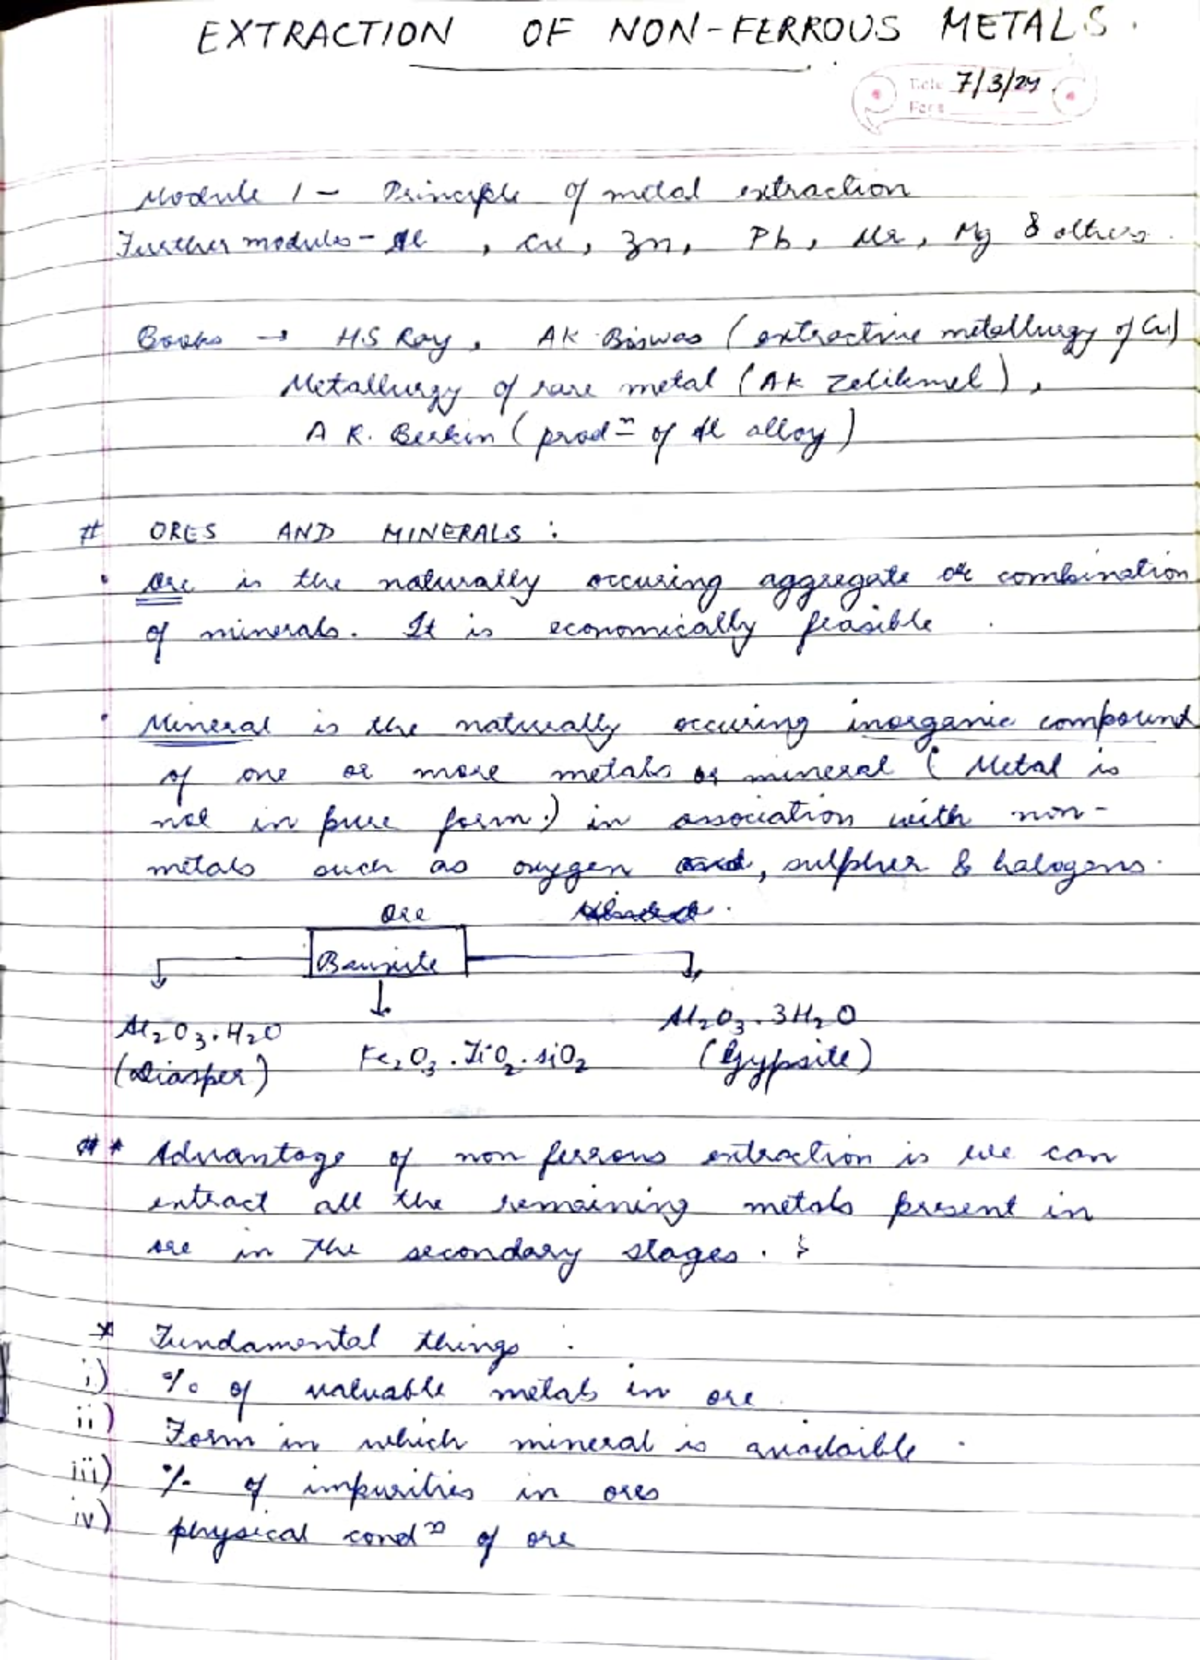 EXTRACTION OF NON-FERROUS METALS.
Date 7/3/24
Module 1 - Principle of metal extraction
Further modules - Al , Cu, Zn, Pb, Ur, Mg & others.
Books → H.S Ray, AK Biswas (extractive metallurgy of Cu)
Metallurgy of rare metal (AK Zelikmel),
A R. Berkin (prodn of Al alloy)
# ORES AND MINERALS :
• Ore is the naturally occuring aggregate or combination
of minerals. It is economically feasible
• Mineral is the naturally occuring inorganic compound
of one or more metals or mineral (Metal is
not in pure form.) in association with non-
metals such as oxygen and, sulpher & halogens.
Ore
Bauxite
Al2O3.H2O
(Diasper)
Fe2O3.TiO2.SiO2
Al2O3.3H2O
(Gypsite)
** Advantage of non ferrous extraction is we can
extract all the remaining metals present in
ore in the secondary stages.
* Fundamental things :
i) % of valuable metals in ore
ii) Form in which mineral is availaible.
iii) % of impurities in ores
iv) physical condn of ore